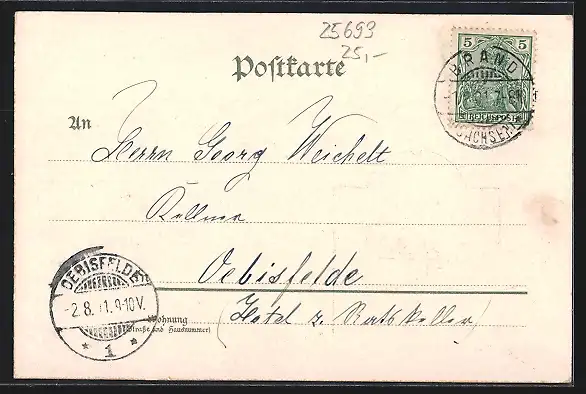 25693
25,-
Postkarte
5 5
REICHSPOST
BRAND
SACHSEN
An
Herrn Georg Weichelt
Kellner
Oebisfelde
(Hotel z. Ratskeller)
Wohnung
(Straße und Hausnummer)
OEBISFELDE
-2.8. 1.9-10V.
* 1 *